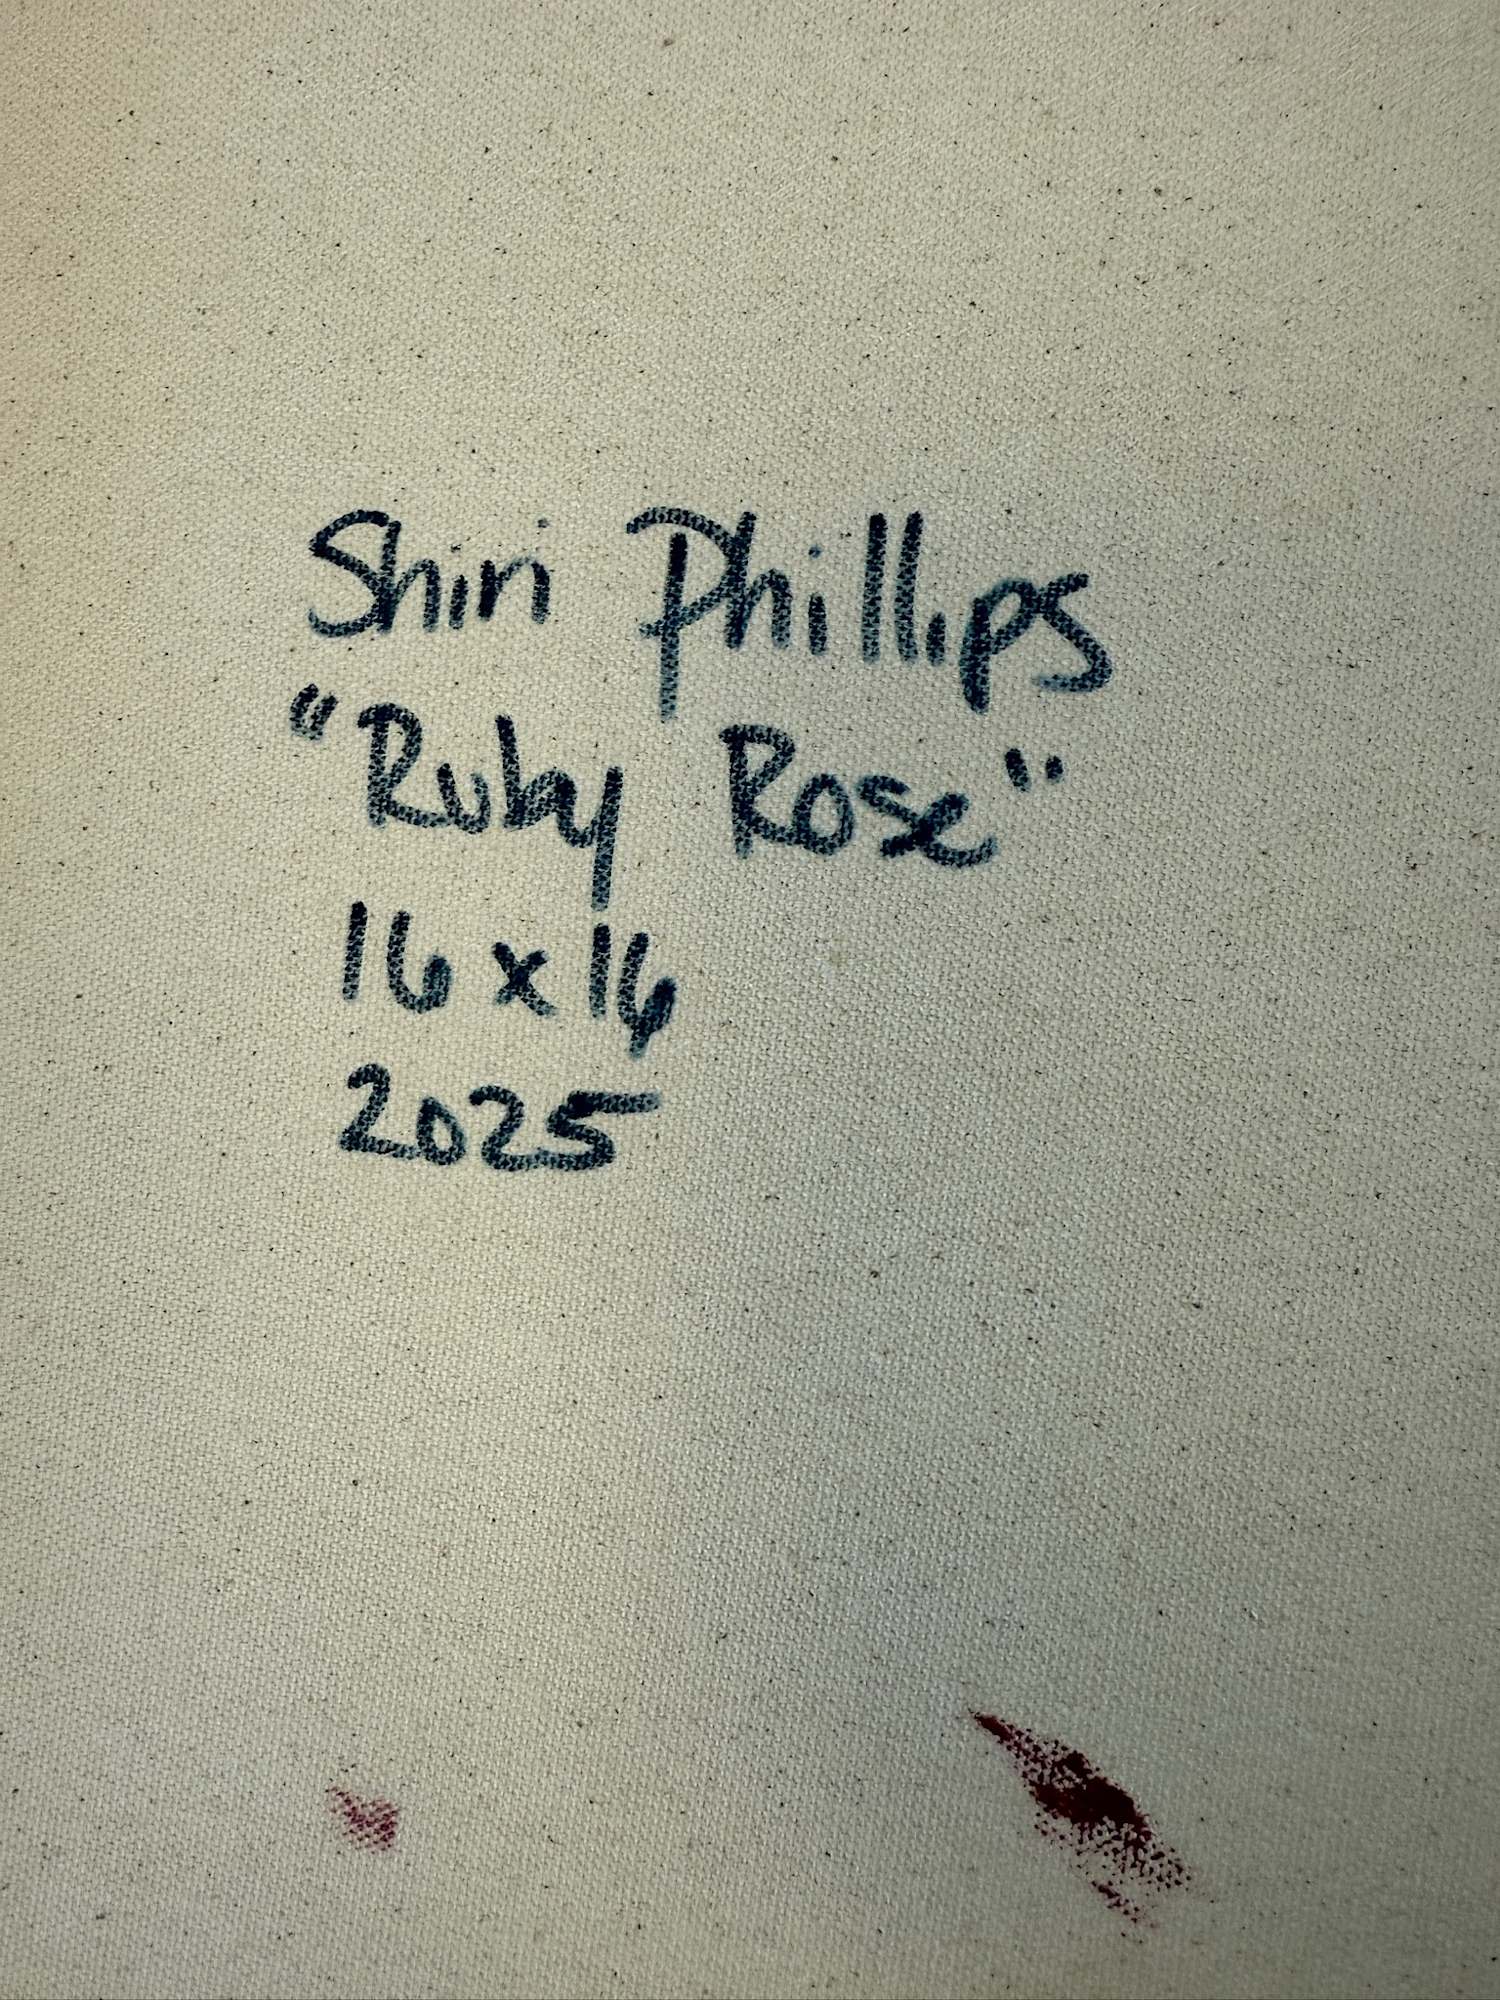 Shiri Phillips
"Ruby Rose"
16 x 16
2025